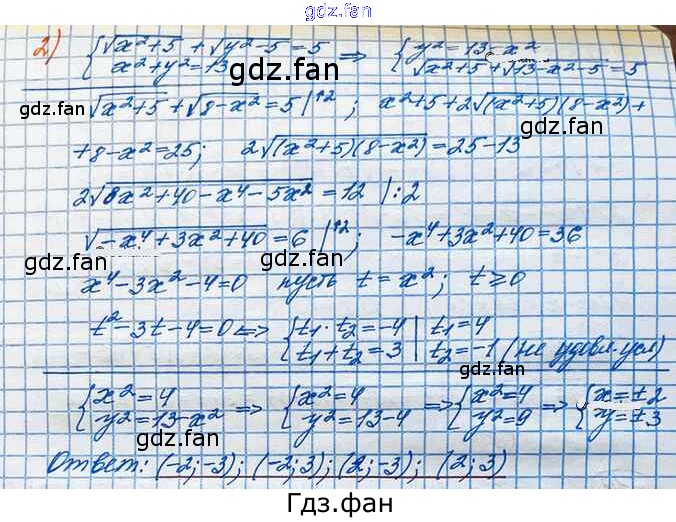 gdz.fan
2) {√x²+5 + √y²-5 = 5 ⇒ {y² = 13-x²
x²+y² = 13 √x²+5 + √13-x²-5 = 5
gdz.fan gdz.fan
√x²+5 + √8-x² = 5 |↑2 ; x²+5+2√(x²+5)(8-x²) +
gdz.fan gdz.fan
+8-x² = 25; 2√(x²+5)(8-x²) = 25-13
2√8x²+40-x⁴-5x² = 12 | :2
gdz.fan
√-x⁴+3x²+40 = 6 |↑2 ; -x⁴+3x²+40 = 36
gdz.fan gdz.fan
x⁴-3x²-4=0 пусть t = x²; t ≥ 0
t²-3t-4=0 ⇔ {t₁·t₂ = -4 | t₁ = 4
t₁+t₂ = 3 | t₂ = -1 (не удовл. усл)
gdz.fan
{x² = 4 ⇒ {x² = 4 ⇒ {x² = 4 ⇒ {x = ±2
y² = 13-x² y² = 13-4 y² = 9 y = ±3
gdz.fan gdz.fan
Ответ: (-2;-3); (-2;3); (2;-3); (2;3)
gdz.fan
Гдз.фан